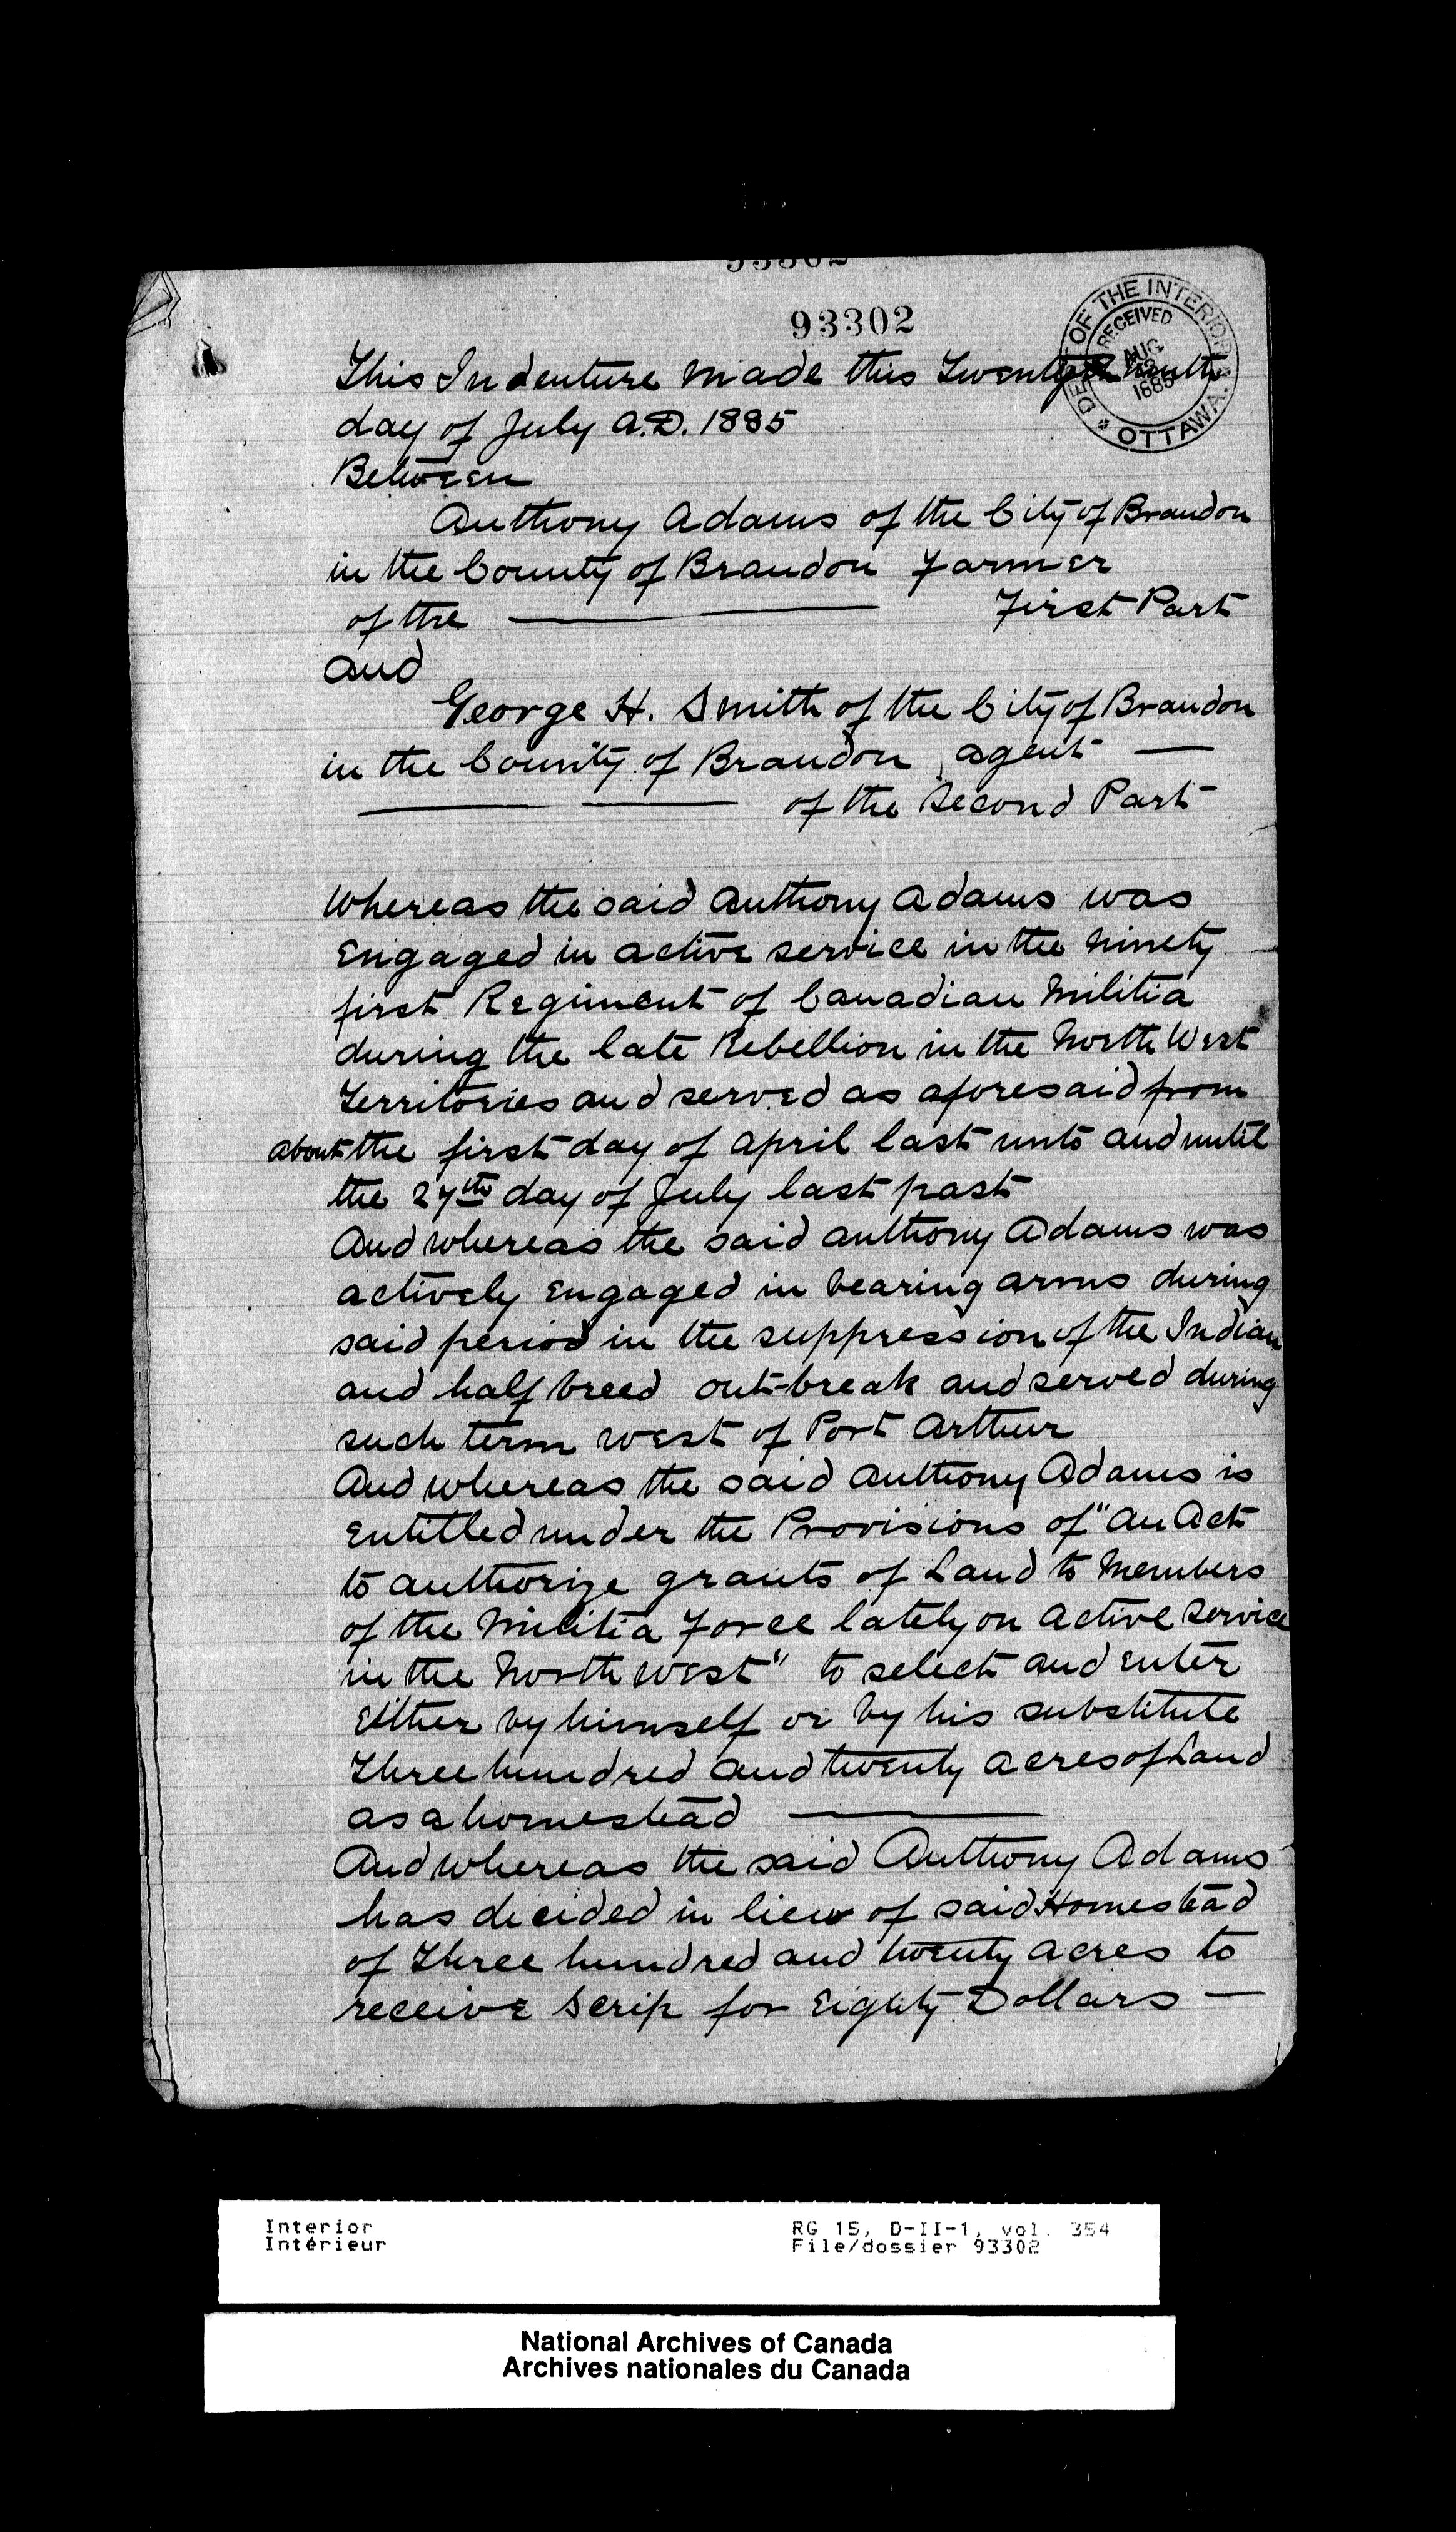 93302
93302
DEPT OF THE INTERIOR
RECEIVED
AUG
1885
OTTAWA
This Indenture made this Twenty Ninth
day of July A.D. 1885
Between
Anthony Adams of the City of Brandon
in the County of Brandon Farmer
of the First Part
and
George H. Smith of the City of Brandon
in the County of Brandon, agent
of the Second Part
Whereas the said Anthony Adams was
Engaged in active service in the Ninety
first Regiment of Canadian Militia
during the late Rebellion in the North West
Territories and served as aforesaid from
about the first day of April last unto and until
the 27th day of July last past
And whereas the said Anthony Adams was
actively Engaged in bearing arms during
said period in the suppression of the Indian
and half breed out-break and served during
such term west of Port Arthur
And whereas the said Anthony Adams is
Entitled under the Provisions of "An Act
to authorize grants of Land to Members
of the Militia Force lately on active service
in the North West" to select and enter
Either by himself or by his substitute
Three hundred and twenty acres of Land
as a homestead
And whereas the said Anthony Adams
has decided in lieu of said Homestead
of Three hundred and twenty acres to
receive Scrip for Eighty Dollars —
Interior
Intérieur
RG 15, D-II-1, vol. 354
File/dossier 93302
National Archives of Canada
Archives nationales du Canada